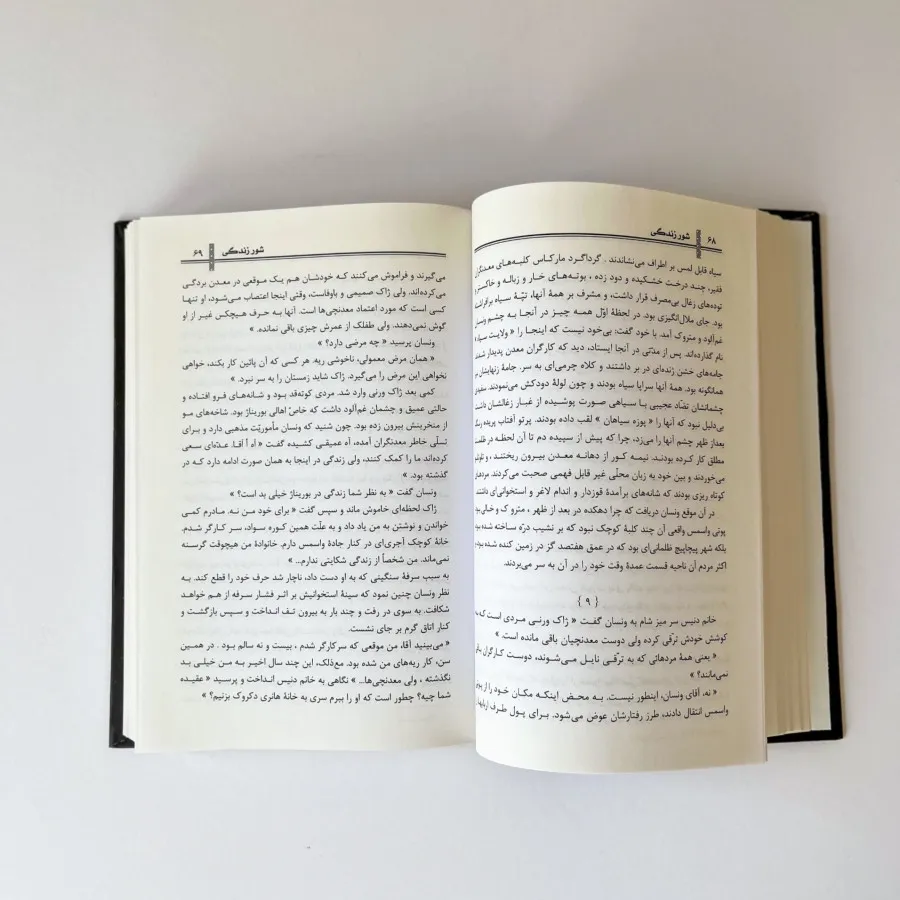 ۶۸ شور زندگی
سیاه قابل لمس بر اطراف می‌نشاندند . گرداگرد مارکاس کلبه‌های معدنگران
فقیر، چند درخت خشکیده و دود زده ، بوته‌های خار و زباله و خاکستر و
توده‌های زغال بی‌مصرف قرار داشت، و مشرف بر همهٔ آنها، تپّهٔ سیاه
بود. جای ملال‌انگیزی بود. در لحظهٔ اوّل همه چیز در آنجا به چشم ونسان
غم‌آلود و متروک آمد. با خود گفت: بی‌خود نیست که اینجا را « ولایت سیاه »
نام گذارده‌اند. پس از مدّتی در آنجا ایستاد، دید که کارگران معدن پدیدار شدند.
جامه‌های خشن ژنده‌ای در بر داشتند و کلاه چرمی‌ای به سر. جامهٔ زنهایشان
همانگونه بود. همهٔ آنها سراپا سیاه بودند و چون لولهٔ دودکش می‌نمودند. سفیدی
چشمانشان تضاد عجیبی با سیاهی صورت پوشیده از غبار زغالشان داشت.
بی‌دلیل نبود که آنها را « پوزه سیاهان » لقب داده بودند. پرتو آفتاب پریده رنگ
بعداز ظهر چشم آنها را می‌زد، چرا که پیش از سپیده دم تا آن لحظه در ظلمت
مطلق کار کرده بودند. نیمه کور از دهانه معدن بیرون ریختند ، و تلوتلو
می‌خوردند و بین خود به زبان محلّی غیر قابل فهمی صحبت می‌کردند. مردهای
کوتاه ریزی بودند که شانه‌های برآمدهٔ قوزدار و اندام لاغر و استخوانی‌ای داشتند.
در آن موقع ونسان دریافت که چرا دهکده در بعد از ظهر ، متروک و خالی بود
پونی واسمس واقعی آن چند کلبهٔ کوچک نبود که بر نشیب درّه ساخته شده بود
بلکه شهر پیچاپیچ ظلمانی‌ای بود که در عمق هفتصد گز در زمین کنده شده بود و
اکثر مردم آن ناحیه قسمت عمدهٔ وقت خود را در آن به سر می‌بردند.
{ ۹ }
خانم دنیس سر میز شام به ونسان گفت « ژاک ورنی مردی است که به
کوشش خودش ترقّی کرده ولی دوست معدنچیان باقی مانده است. »
« یعنی همهٔ مردهائی که به ترقّی نایل می‌شوند، دوست کارگران باقی
نمی‌مانند؟ »
« نه، آقای ونسان، اینطور نیست. به محض اینکه مکان خود را از
واسمس انتقال دادند، طرز رفتارشان عوض می‌شود. برای پول طرف اربابها
شور زندگی ۶۹
می‌گیرند و فراموش می‌کنند که خودشان هم یک موقعی در معدن بردگی
می‌کرده‌اند. ولی ژاک صمیمی و باوفاست، وقتی اینجا اعتصاب می‌شود، او تنها
کسی است که مورد اعتماد معدنچی‌ها است. آنها به حرف هیچکس غیر از او
گوش نمی‌دهند. ولی طفلک از عمرش چیزی باقی نمانده. »
ونسان پرسید « چه مرضی دارد؟ »
« همان مرض معمولی، ناخوشی ریه. هر کسی که آن پائین کار بکند، خواهی
نخواهی این مرض را می‌گیرد. ژاک شاید زمستان را به سر نبرد. »
کمی بعد ژاک ورنی وارد شد. مردی کوته‌قد بود و شانه‌های فرو افتاده و
حالتی عمیق و چشمان غم‌آلود داشت که خاصّ اهالی بوریناژ بود. شاخه‌های مو
از منخرینش بیرون زده بود. چون شنید که ونسان مأموریّت مذهبی دارد و برای
تسلّی خاطر معدنگران آمده، آه عمیقی کشیده گفت « آه آقا. عدّه‌ای سعی
کرده‌اند ما را کمک کنند، ولی زندگی در اینجا به همان صورت ادامه دارد که در
گذشته بود. »
ونسان گفت « به نظر شما زندگی در بوریناژ خیلی بد است؟ »
ژاک لحظه‌ای خاموش ماند و سپس گفت « برای خود من نه. مادرم کمی
خواندن و نوشتن به من یاد داد و به علّت همین کوره سواد، سر کارگر شدم.
خانهٔ کوچک آجری‌ای در کنار جادهٔ واسمس دارم. خانوادهٔ من هیچوقت گرسنه
نمی‌ماند. من شخصاً از زندگی شکایتی ندارم... »
به سبب سرفهٔ سنگینی که به او دست داد، ناچار شد حرف خود را قطع کند. به
نظر ونسان چنین نمود که سینهٔ استخوانیش بر اثر فشار سرفه از هم خواهد
شکافت. به سوی در رفت و چند بار به بیرون تف انداخت و سپس بازگشت و
کنار اتاق گرم بر جای نشست.
« می‌بینید آقا، من موقعی که سرکارگر شدم ، بیست و نه سالم بود . در همین
سن، کار ریه‌های من شده بود. مع‌ذلک، این چند سال اخیر به من خیلی بد
نگذشته ، ولی معدنچی‌ها... » نگاهی به خانم دنیس انداخت و پرسید « عقیده
شما چیه؟ چطور است که او را ببرم سری به خانهٔ هانری دکروک بزنیم؟ »